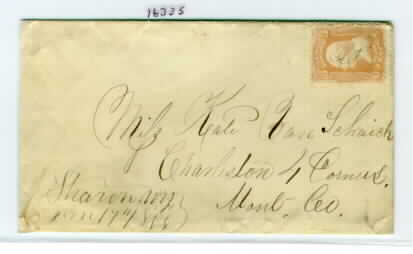 18335
Miss Kate Van Schaick
Charleston 4 Corners.
Mont. Co.
Sharon NY